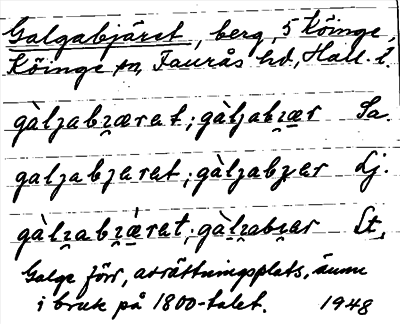 Galgabjäret, berg, S Köinge,
Köinge sn, Faurås hd, Hall. l.
gàlʒabʒæret; gàlʒabʒær Sa.
galʒabʒeret; gàlʒabʒer Lj.
gàlʒabʒæ̀ret; gàlʒabʒer Lt.
Galge förr, avrättningsplats, ännu
i bruk på 1800-talet. 1948